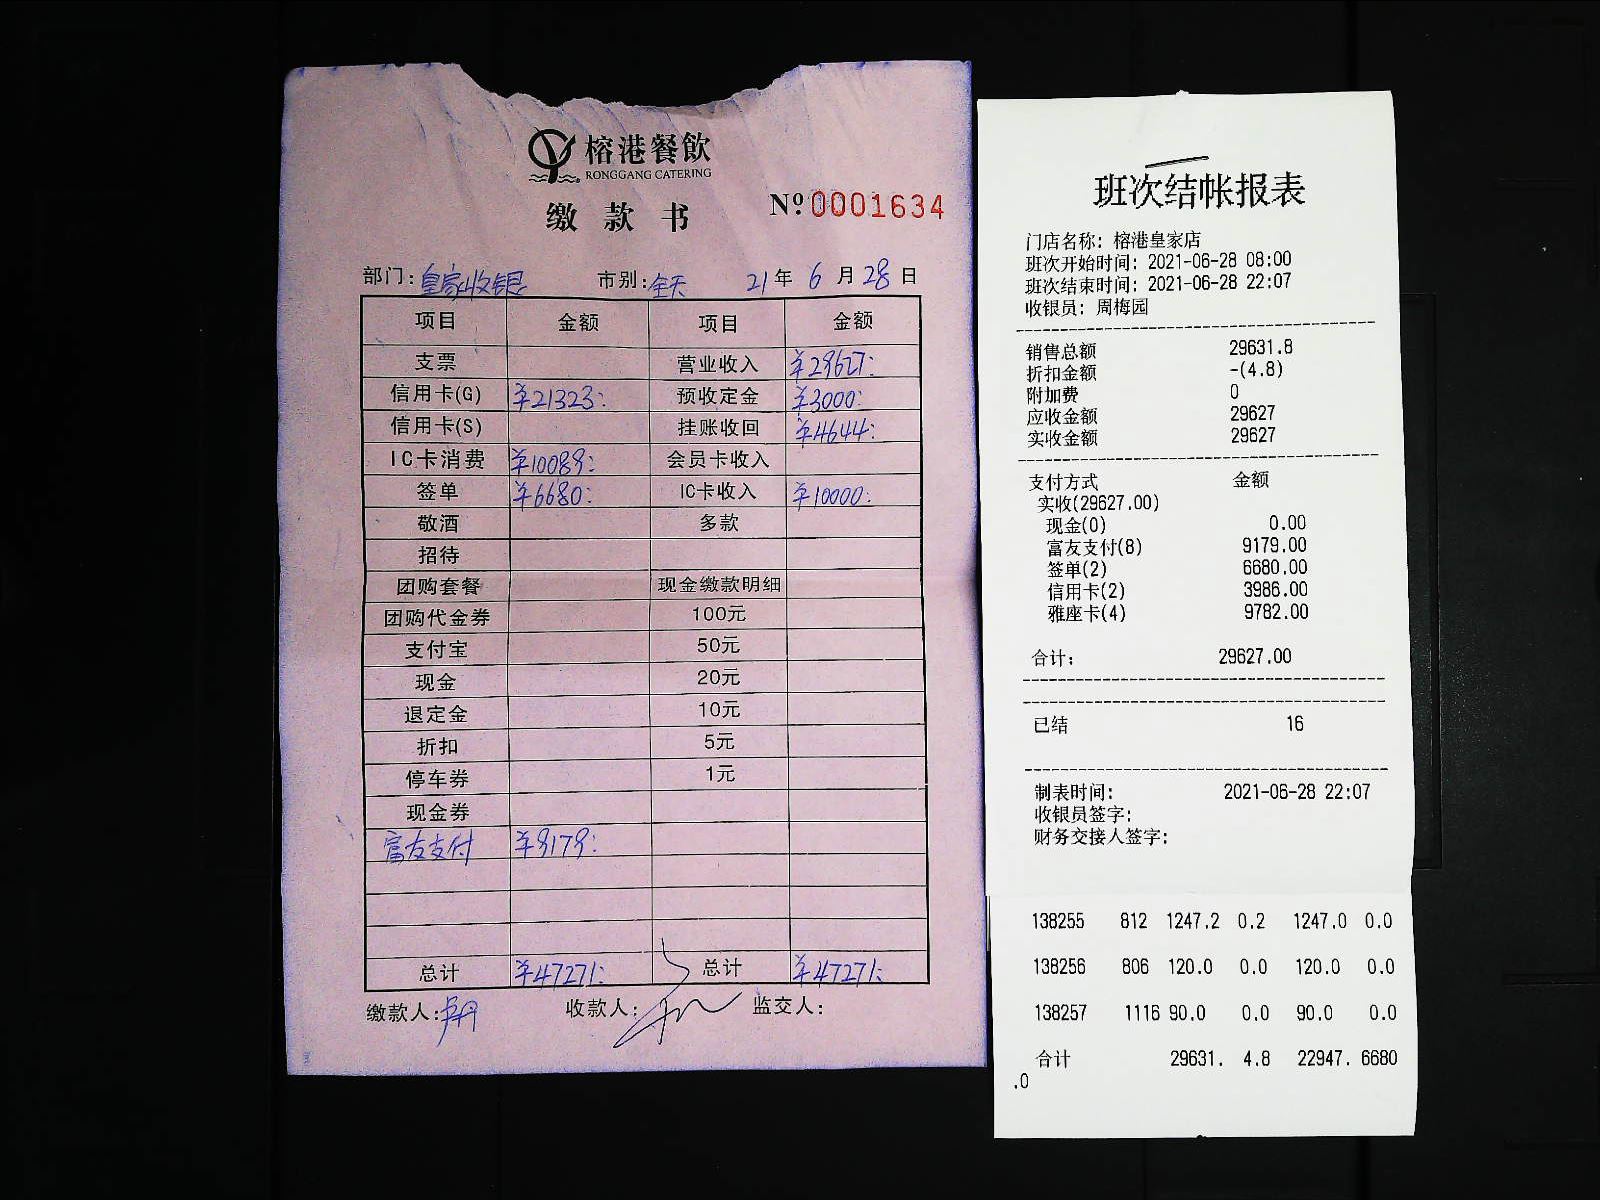 榕港餐飲
RONGGANG CATERING
缴款书
Nº 0001634
部门:皇家收银 市别:全天 21年6月28日
项目 金额 项目 金额
支票 营业收入 ¥29627:
信用卡(G) ¥21323: 预收定金 ¥3000:
信用卡(S) 挂账收回 ¥4644:
IC卡消费 ¥10089: 会员卡收入
签单 ¥6680: IC卡收入 ¥10000:
敬酒 多款
招待
团购套餐 现金缴款明细
团购代金券 100元
支付宝 50元
现金 20元
退定金 10元
折扣 5元
停车券 1元
现金券
富友支付 ¥9179:
总计 ¥47271: 总计 ¥47271:
缴款人: 收款人: 监交人:
班次结帐报表
门店名称: 榕港皇家店
班次开始时间: 2021-06-28 08:00
班次结束时间: 2021-06-28 22:07
收银员: 周梅园
销售总额 29631.8
折扣金额 -(4.8)
附加费 0
应收金额 29627
实收金额 29627
支付方式 金额
实收(29627.00)
现金(0) 0.00
富友支付(8) 9179.00
签单(2) 6680.00
信用卡(2) 3986.00
雅座卡(4) 9782.00
合计: 29627.00
已结 16
制表时间: 2021-06-28 22:07
收银员签字:
财务交接人签字:
138255 812 1247.2 0.2 1247.0 0.0
138256 806 120.0 0.0 120.0 0.0
138257 1116 90.0 0.0 90.0 0.0
合计 29631. 4.8 22947. 6680
.0